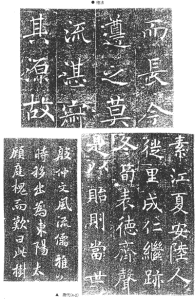 而長今
遵之莫
流湛寂
其源故
素江夏安陸人
徙里成仁繼跡
冬筍表德齊聲
貽則當世
殷仲文風流儒雅
時移出為東陽太
顧庭槐而歎曰此樹